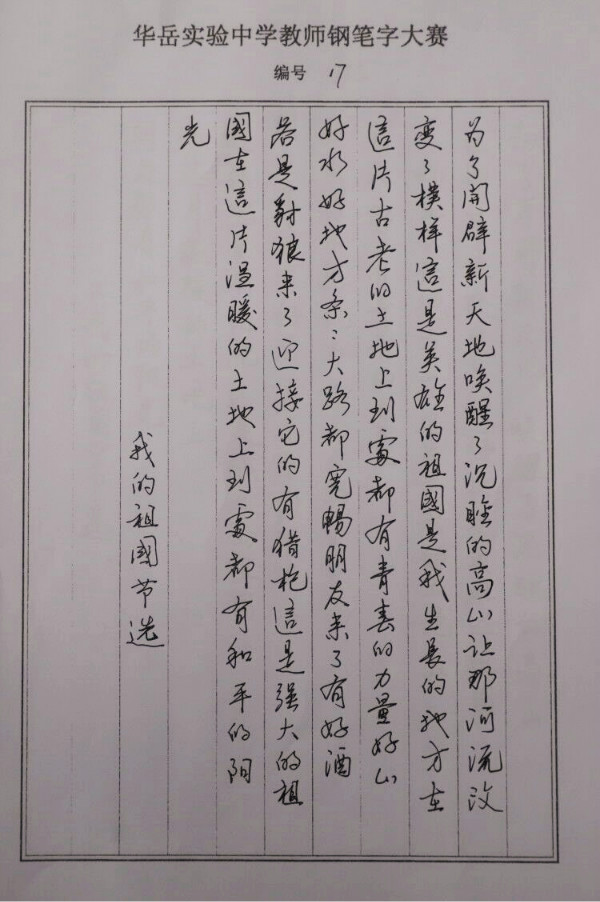 华岳实验中学教师钢笔字大赛
编号 17
为了开辟新天地唤醒了沉睡的高山让那河流改
变了模样這是英雄的祖國是我生長的地方在
這片古老的土地上到處都有青春的力量好山
好水好地方条：大路都宽暢朋友来了有好酒
若是豺狼来了迎接它的有猎枪這是强大的祖
國在這片温暖的土地上到處都有和平的阳
光
我的祖國节选